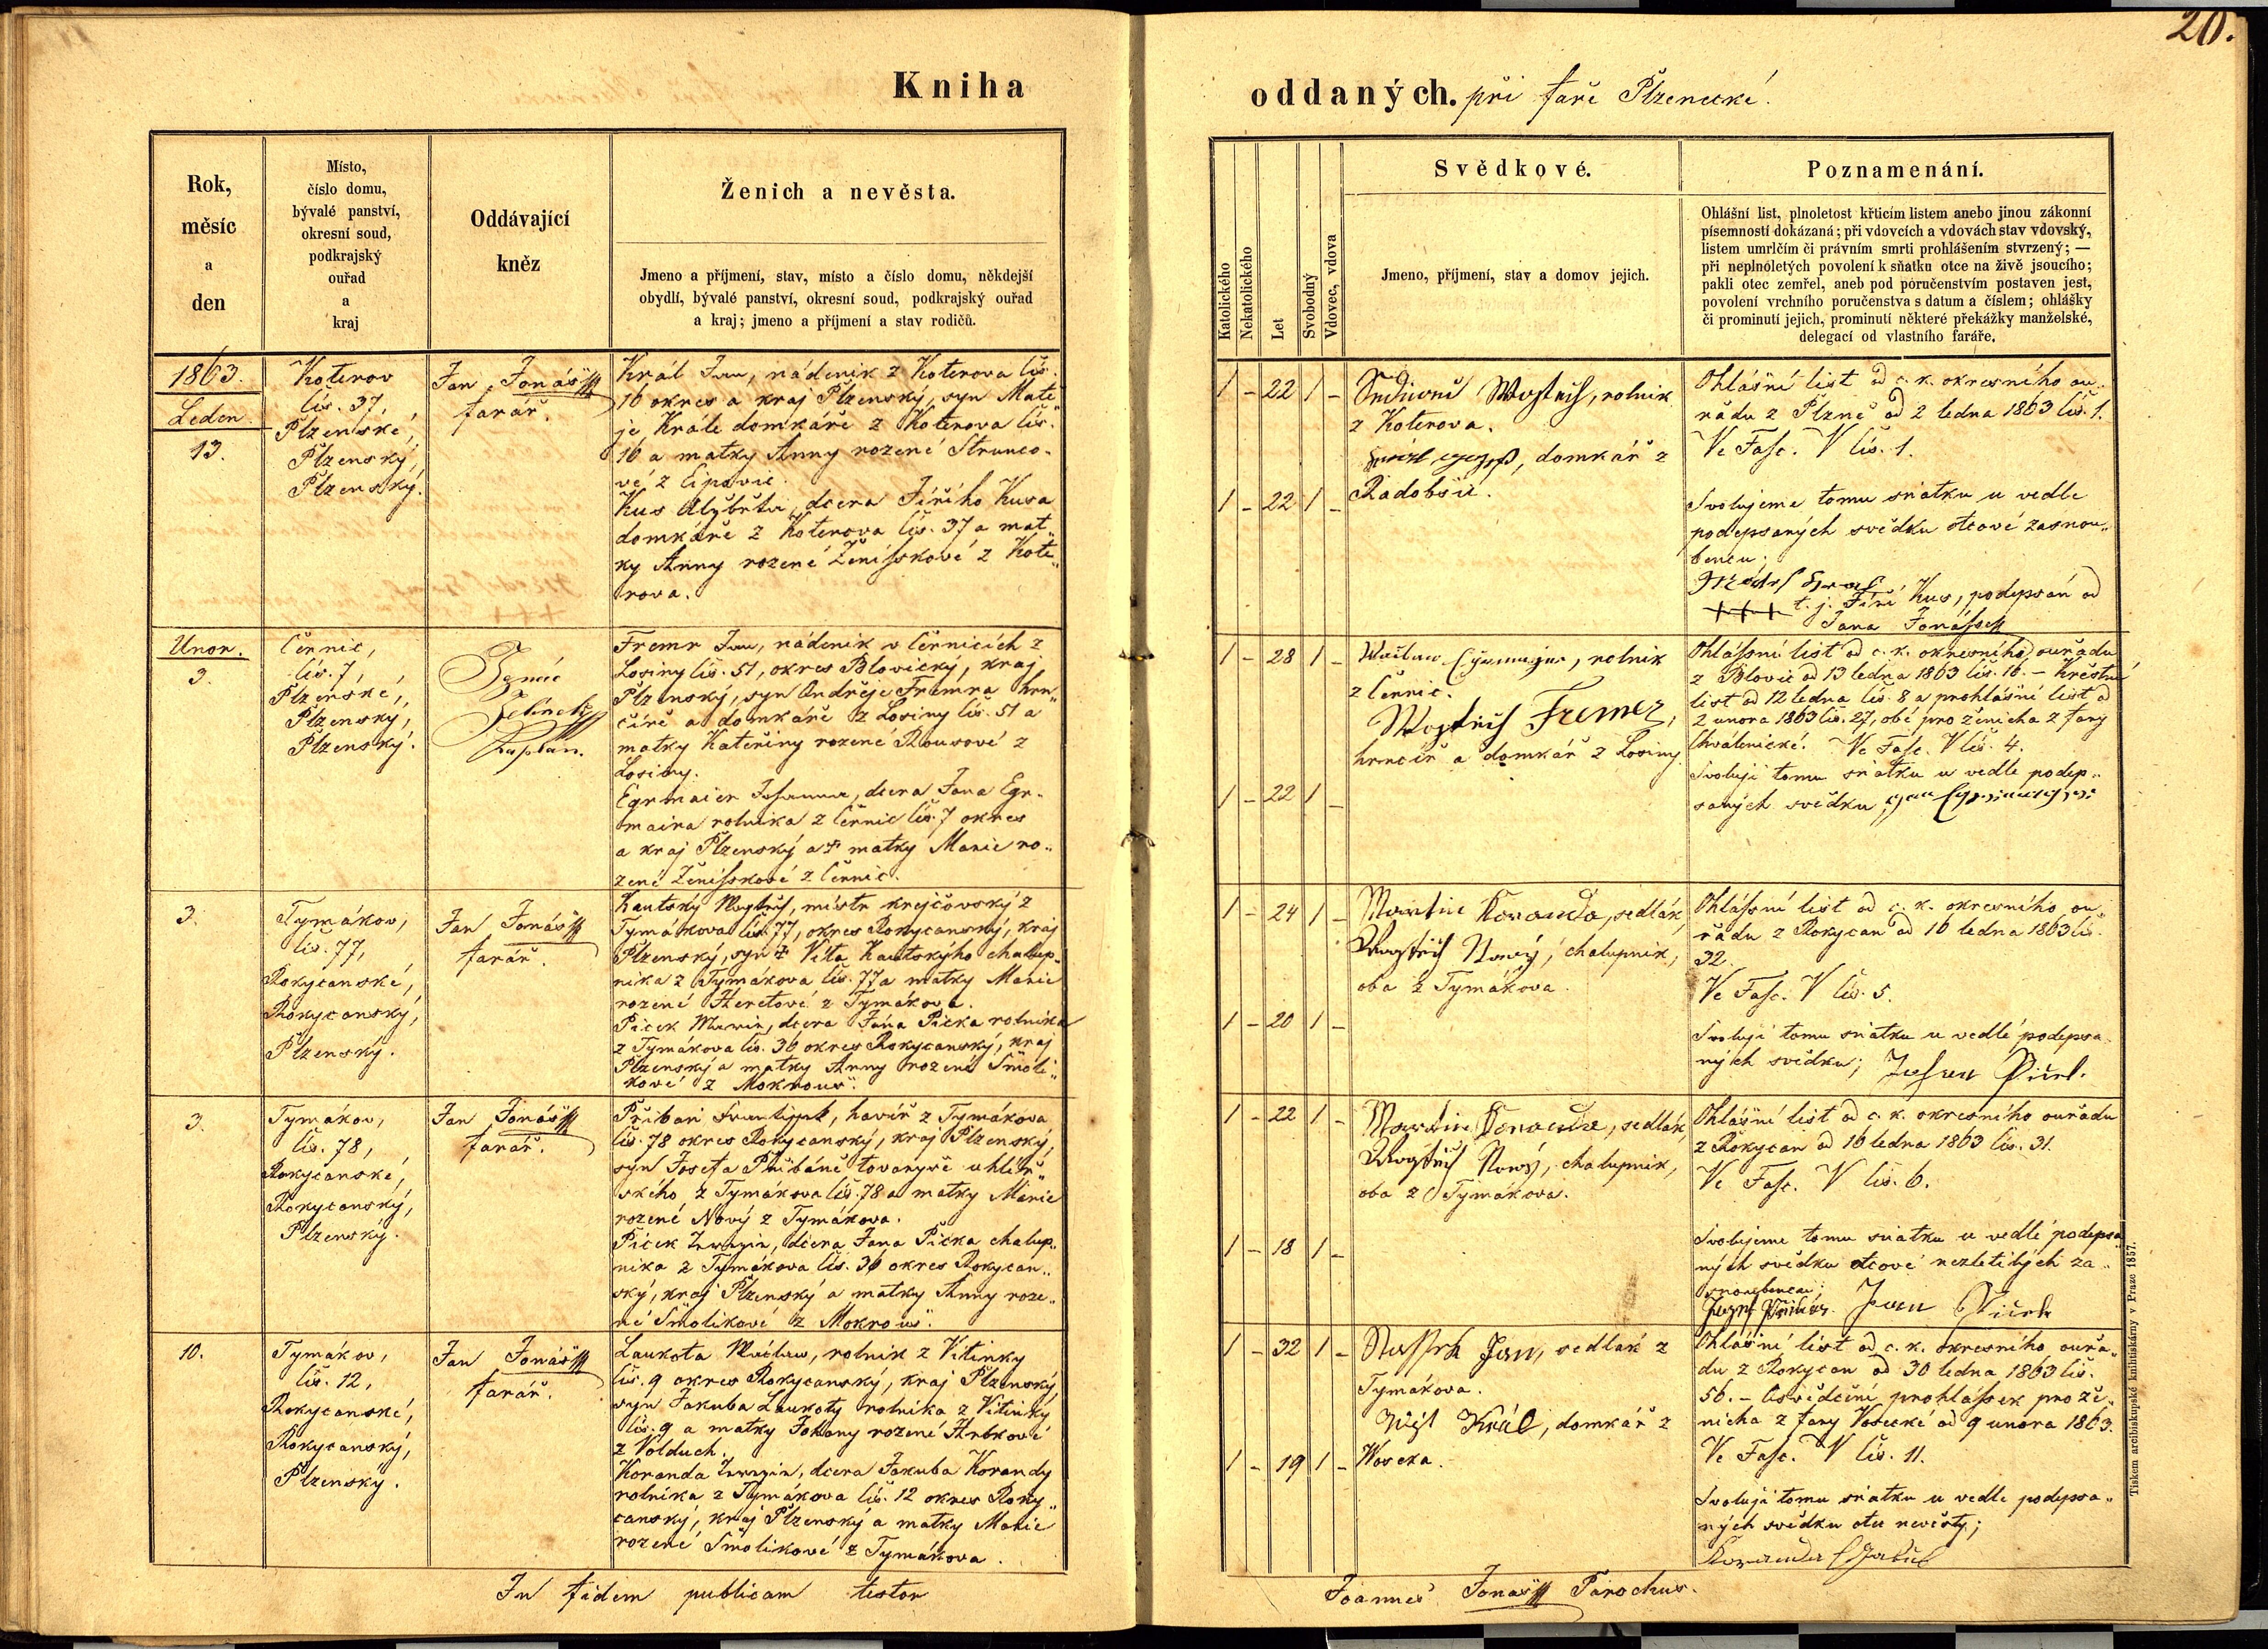 20.
Kniha
oddaných. při faře Plzenecké.
Rok,
měsíc
a
den
Místo,
číslo domu,
bývalé panství,
okresní soud,
podkrajský
ouřad
a
kraj
Oddávající
kněz
Ženich a nevěsta.
Jmeno a příjmení, stav, místo a číslo domu, někdejší
obydlí, bývalé panství, okresní soud, podkrajský ouřad
a kraj; jmeno a příjmení a stav rodičů.
Katolického
Nekatolického
Let
Svobodný
Vdovec, vdova
Svědkové.
Jmeno, příjmení, stav a domov jejich.
Poznamenání.
Ohlášní list, plnoletost křticím listem anebo jinou zákonní
písemností dokázaná; při vdovcích a vdovách stav vdovský,
listem umrlčím či právním smrti prohlášením stvrzený; —
při neplnoletých povolení k sňatku otce na živě jsoucího;
pakli otec zemřel, aneb pod poručenstvím postaven jest,
povolení vrchního poručenstva s datum a číslem; ohlášky
či prominutí jejich, prominutí některé překážky manželské,
delegací od vlastního faráře.
1863.
Leden
13.
Koterov
čis. 37,
Plzenské,
Plzenský,
Plzenský.
Jan Jonášſſ
farář.
Král Jan, nádeník z Koterova čis.
16 okres a kraj Plzenský, syn Matě„
je Krále domkáře z Koterova čis.
16 a matky Anny rozené Strunco„
vé z Lipovic.
Kus Alžběta, dcera Jiřího Kusa
domkáře z Koterova čis. 37 a mat„
ky Anny rozené Ženíſskové z Kote„
rova.
1 – 22 1 –
1 – 22 1 –
Wojtěch, rolník
z Koterova.
domkář z
Radobšic.
Ohlášní list od c. k. okresního ou„
řadu z Plzně od 2 ledna 1863 čis. 1.
Ve Faſc. V čis. 1.
Svolujeme tomu sňatku u vedle
podepsaných svědku otcové zasnou„
benců;
+++ t. j. Jiří Kus, podepsán od
Jana Jonáſſe
Unor.
3.
Černic,
čis. 7,
Plzenské,
Plzenský,
Plzenský.
Kaplan.
Fremr Jan, nádeník v Černicích z
Losiny čis. 51, okres Blovický, kraj
Plzenský, syn Ondřeje Fremra hrn„
číře a domkáře z Losiny čis. 51 a
matky Kateřiny rozené Rousové z
Losiny.
Egrmaier Johanna, dcera Jana Egr„
maira rolníka z Černic čis. 7 okres
a kraj Plzenský a † matky Marie ro„
zené Ženíſskové z Černic.
1 – 28 1 –
1 – 22 1 –
rolník
z Černic.
Wojtěch Fremr,
hrnčíř a domkář z Losiny
Ohláſsní list od c. k. okresního ouřadu
z Blovic od 13 ledna 1863 čis. 16. – Křestní
list od 12 ledna čis. 8 a prohlášní list od
2 unora 1863 čis. 27, obé pro ženicha z fary
Chválenické. Ve Faſc. V čis. 4.
Svoluji tomu sňatku u vedle podep„
saných svědku,
3.
Tymákov,
čis. 77,
Rokycanské,
Rokycanský,
Plzenský.
Jan Jonášſſ
farář.
Kautský Wojtěch, mistr krejčovský z
Tymákova čis. 77, okres Rokycanský, kraj
Plzenský, syn † Víta Kautskýho chalup„
níka z Tymákova čis. 77 a matky Marie
rozené Heretové z Tymákova.
Picek Marie, dcera Jána Picka rolníka
z Tymákova čis. 36 okres Rokycanský, kraj
Plzenský a matky Anny rozené Smolí„
kové z Mokrouš.
1 – 24 1 –
1 – 20 1 –
Martin Koranda, sedlák,
Wojtěch Nový, chalupník,
oba z Tymákova.
Ohláſsní list od c. k. okresního ou„
řadu z Rokycan od 16 ledna 1863 čis.
32.
Ve Faſc. V čis. 5.
Svoluji tomu sňatku u vedlé podepsa„
ných svědku;
3.
Tymákov,
čis. 78,
Rokycanské,
Rokycanský,
Plzenský.
Jan Jonášſſ
farář.
Přibáň Frantiſsek, havíř z Tymákova
čis. 78 okres Rokycanský, kraj Plzenský,
syn Josefa Přibáně tovaryše uhlíř„
ského z Tymákova čis. 78 a matky Marie
rozené Nový z Tymákova.
Picek Terezie, dcera Jana Picka chalup„
níka z Tymákova čis. 36 okres Rokycan„
ský, kraj Plzenský a matky Anny roze„
né Smolíkové z Mokrouš.
1 – 22 1 –
1 – 18 1 –
Martin Koranda, sedlák,
Wojtěch Nový, chalupník,
oba z Tymákova.
Ohlášní list od c. k. okresního ouřadu
z Rokycan od 16 ledna 1863 čis. 31.
Ve Faſc. V čis. 6.
Svolujeme tomu sňatku u vedlé podepsa„
ných svědku otcové nezletilých za„
snoubenců;
Jozef Přibáň. Jan Piček
10.
Tymákov,
čis. 12,
Rokycanské,
Rokycanský,
Plzenský.
Jan Jonášſſ
farář.
Laukota Wáclaw, rolník z Vitinky
čis. 9 okres Rokycanský, kraj Plzenský,
syn Jakuba Laukoty rolníka z Vitinky
čis. 9 a matky Johany rozené Hrbkové
z Volduch.
Koranda Terezie, dcera Jakuba Korandy
rolníka z Tymákova čis. 12 okres Roky„
canský, kraj Plzenský a matky Marie
rozené Smolíkové z Tymákova.
1 – 32 1 –
1 – 19 1 –
Jan, sedlák z
Tymákova.
Král, domkář z
Woseka.
Ohlášní list od c. k. okresního ouřa„
du z Rokycan od 30 ledna 1863 čis.
56. – Osvědčení prohláſsek pro že„
nicha z fary Vosecké od 9 unora 1863.
Ve Faſc. V čis. 11.
Svoluji tomu sňatku u vedle podepsa„
ných svědku otec nevěsty;
Koranda Jakub
In fidem publicam testor
Joannes Jonášſſ Parochus.
Tiskem arcibiskupské knihtiskárny v Praze 1857.